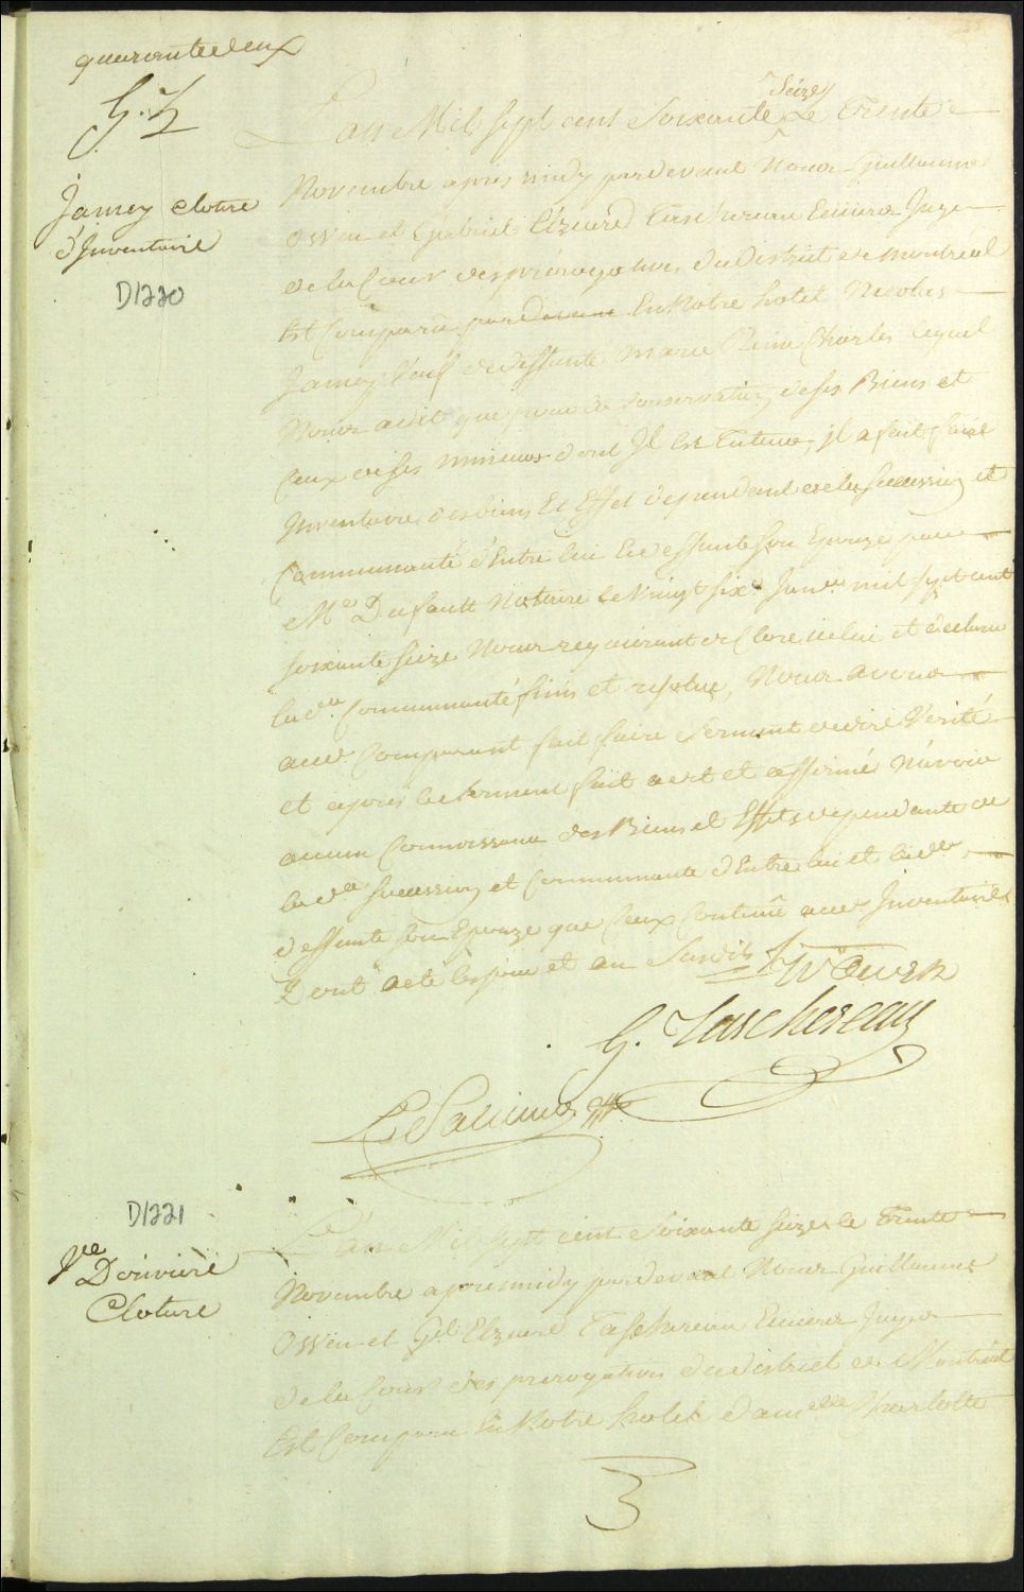 quarantedeux
G. T.
Jamey cloture
d'Inventaire
D1220
Seize
Lan Mil Sept cent Soixante Le Trente
Novembre apres midy pardevant Nous Guillaume
Owen et Gabriel Elzeard Taschereau Ecuiers Juges
de la Cour des prérogatives du District de Montreal
Est Comparu pardevant En Notre hotel Nicolas
Jamey Veuf de deffunte Marie Charles Lequel
Nous a dit que pour la Conservation de ses Biens et
Ceux de ses mineurs dont Il Est Tuteur, il a fait faire
Inventaire des biens Et Effet dependant de la Succession et
Communauté d'Entre lui Et deffunte Son Epouze par
Me Dufault Notaire le Vingt six Janver mil sept cent
soixante Seize Nous requierant de Clore icelui et declarer
lade Communauté finis et resolue, Nous avons
aud. Comparant fait faire Serment de dire Verité
et apres le Serment fait a dit et affirmé N'avoir
aucun Connoissance des Biens et Effets dependante de
lade Succession et Communauté d'Entre lui et lade
deffunte son Epouze que Ceux Contenû aud Inventaire
Dont acte les jour et an Susdits Wm Owen
G. Taschereau
D1221
Vee Dorivière
Cloture
Lan Mil Sept cent Soixante Seize le Trente
Novembre apresmidy pardevant Nous Guillaume
Owen et Gel Elzeard Taschereau Ecuiers Juges
de la Cour des prerogatives du district de Montreal
Est Comparu En Notre hotel dam.elle Charlotte
3